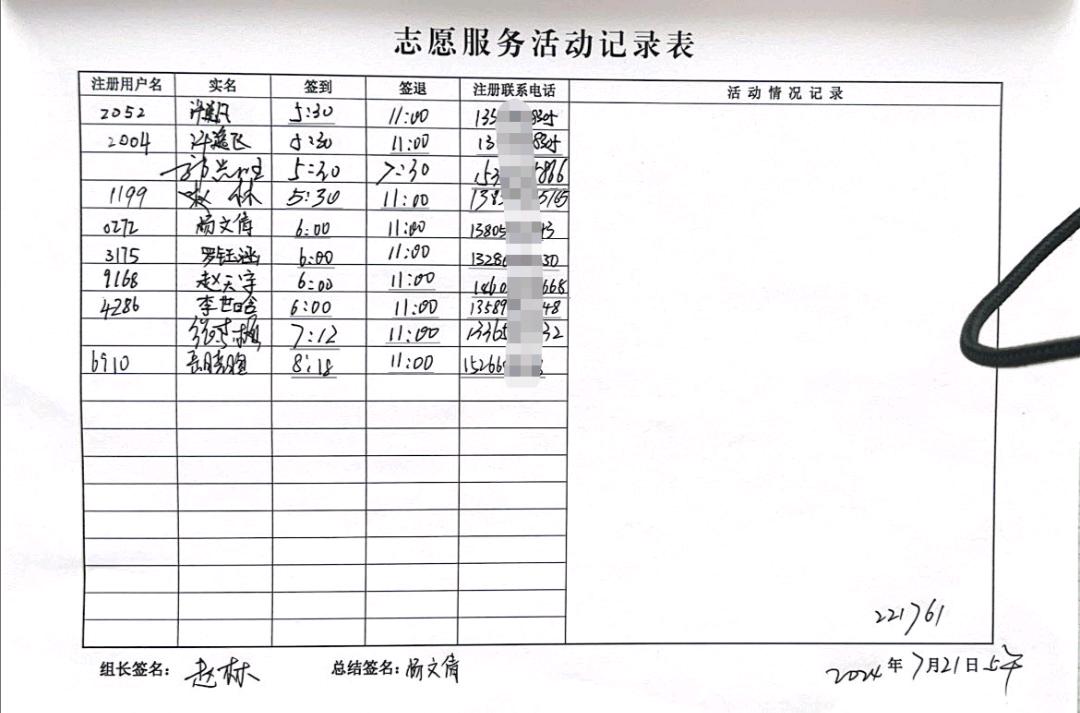 志愿服务活动记录表
注册用户名 实名 签到 签退 注册联系电话 活动情况记录
2052 5:30 11:00 135 8305
2004 5:30 11:00 13 8305
5:30 7:30 153 866
1199 林 5:30 11:00 138 5165
0272 杨文倩 6:00 11:00 13805 43
3175 罗钰涵 6:00 11:00 13286 30
9168 赵天宇 6:00 11:00 1460 668
4286 李世晗 6:00 11:00 13589 48
7:12 11:00 13365 32
6910 8:18 11:00 15266
221761
组长签名: 赵林 总结签名: 杨文倩 2024年7月21日上午